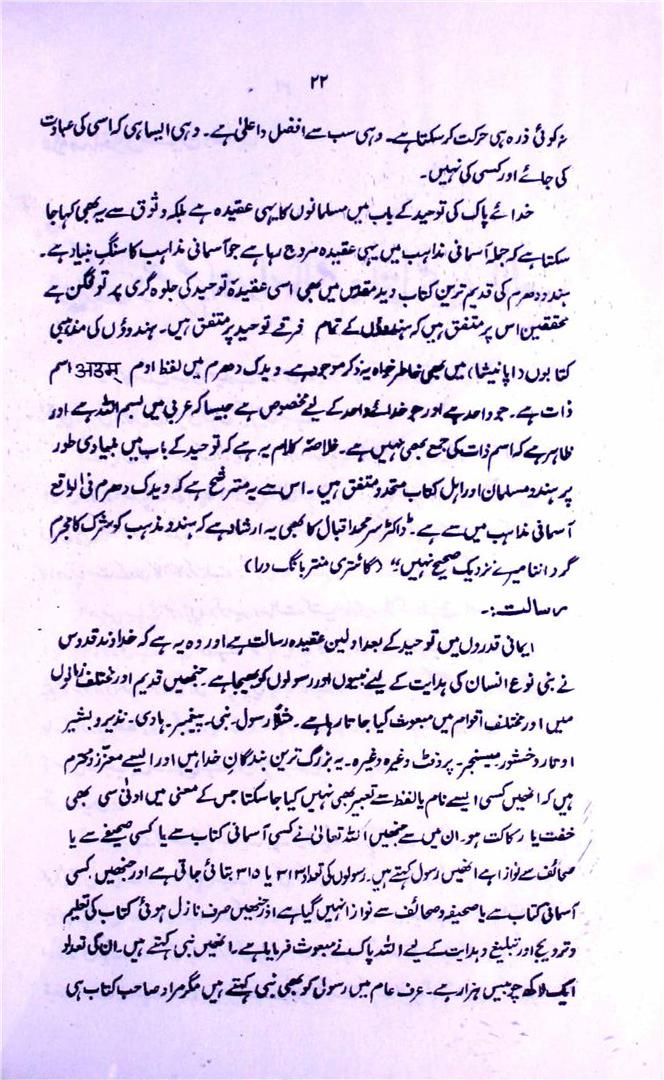 ۲۲
کوئی ذرہ ہی حرکت کر سکتا ہے۔ وہی سب سے افضل و اعلیٰ ہے۔ وہی ایسا ہی کہ اسی کی عبادت
کی جائے اور کسی کی نہیں۔
خدائے پاک کی توحید کے باب میں مسلمانوں کا یہی عقیدہ ہے بلکہ وثوق سے یہ بھی کہا جا
سکتا ہے کہ جملہ آسمانی مذاہب میں یہی عقیدہ مروج رہا ہے جو آسمانی مذاہب کا سنگِ بنیاد ہے۔
ہندو دھرم کی قدیم ترین کتاب وید مقدس میں بھی اسی عقیدۂ توحید کی جلوہ گری پر تو فگن ہے
محققین اس پر متفق ہیں کہ ہندوؤں کے تمام فرقے توحید پر متفق ہیں۔ ہندوؤں کی مذہبی
کتابوں (اپانیشا) میں بھی خاطر خواہ یہ ذکر موجود ہے۔ ویدک دھرم میں لفظ اوم अउम् اسم
ذات ہے۔ جو واحد ہے اور جو خدائے واحد کے لیے مخصوص ہے جیسا کہ عربی میں بسم اللہ ہے اور
ظاہر ہے کہ اسم ذات کی جمع بھی نہیں ہے۔ خلاصۂ کلام یہ ہے کہ توحید کے باب میں بنیادی طور
پر ہندو مسلمان اور اہل کتاب متحد و متفق ہیں۔ اس سے یہ مترشح ہے کہ ویدک دھرم فی الواقع
آسمانی مذاہب میں سے ہے۔ ڈاکٹر سر محمد اقبال کا بھی یہ ارشاد ہے کہ ہندو مذہب کو شرک کا مجرم
گرداننا میرے نزدیک صحیح نہیں" (گائتری منتر بانگ درا)
رسالت:۔
ایمانی قدروں میں توحید کے بعد اولین عقیدہ رسالت ہے اور وہ یہ ہے کہ خداوند قدوس
نے بنی نوع انسان کی ہدایت کے لیے نبیوں اور رسولوں کو بھیجا ہے۔ جنھیں قدیم اور مختلف زمانوں
میں اور مختلف اقوام میں مبعوث کیا جاتا رہا ہے۔ مثلاً رسول۔ نبی۔ پیغمبر۔ ہادی۔ نذیر و بشیر
اوتار وخشور میسنجر۔ پرذنٹ وغیرہ وغیرہ۔ یہ بزرگ ترین بندگانِ خدا ہیں اور ایسے معزز و محترم
ہیں کہ انھیں کسی ایسے نام یا لفظ سے تعبیر بھی نہیں کیا جا سکتا جس کے معنی میں ادنیٰ سی بھی
خفت یا رکاکت ہو۔ ان میں سے جنھیں اللہ تعالیٰ نے کسی آسمانی کتاب سے یا کسی صحیفے سے یا
صحائف سے نوازا ہے انھیں رسول کہتے ہیں۔ رسولوں کی تعداد ۳۱۳ یا ۳۱۵ بتائی جاتی ہے اور جنھیں کسی
آسمانی کتاب سے یا صحیفہ و صحائف سے نوازا نہیں گیا ہے اور جنھیں صرف نازل ہوئی کتاب کی تعلیم
و ترویج اور تبلیغ و ہدایت کے لیے اللہ پاک نے مبعوث فرمایا ہے۔ انھیں نبی کہتے ہیں۔ ان کی تعداد
ایک لاکھ چوبیس ہزار ہے۔ عرف عام میں رسول کو بھی نبی کہتے ہیں مگر مراد صاحب کتاب ہی